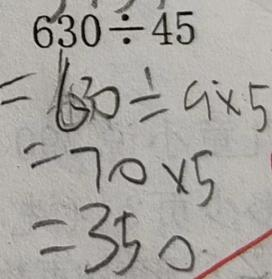 630÷45
=630÷9×5
=70×5
=350